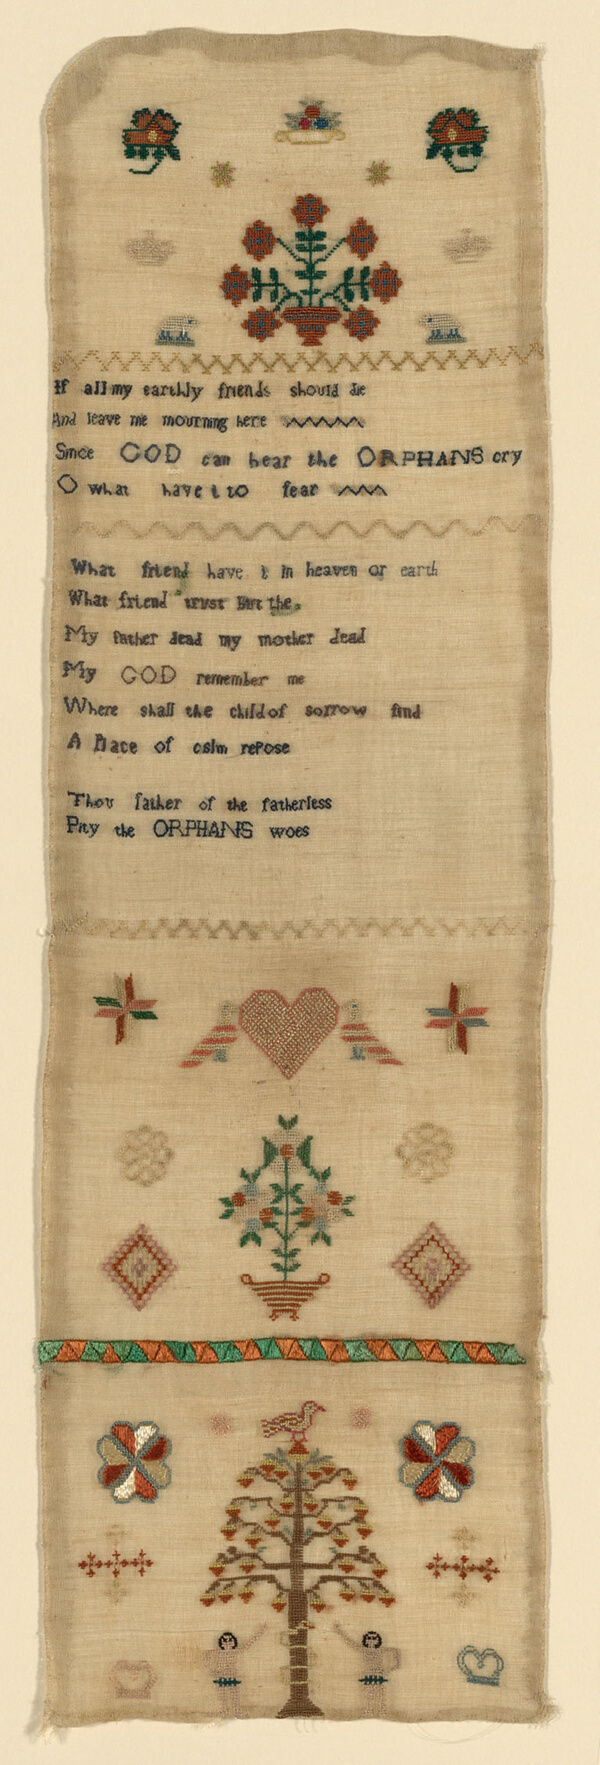 If all my earthly friends should die
And leave me mourning here
Since GOD can hear the ORPHANS cry
O what have i to fear
What friend have i in heaven or earth
What friend trust but the
My father dead my mother dead
My GOD remember me
Where shall the child of sorrow find
A Place of calm repose
Thou father of the fatherless
Pity the ORPHANS woes